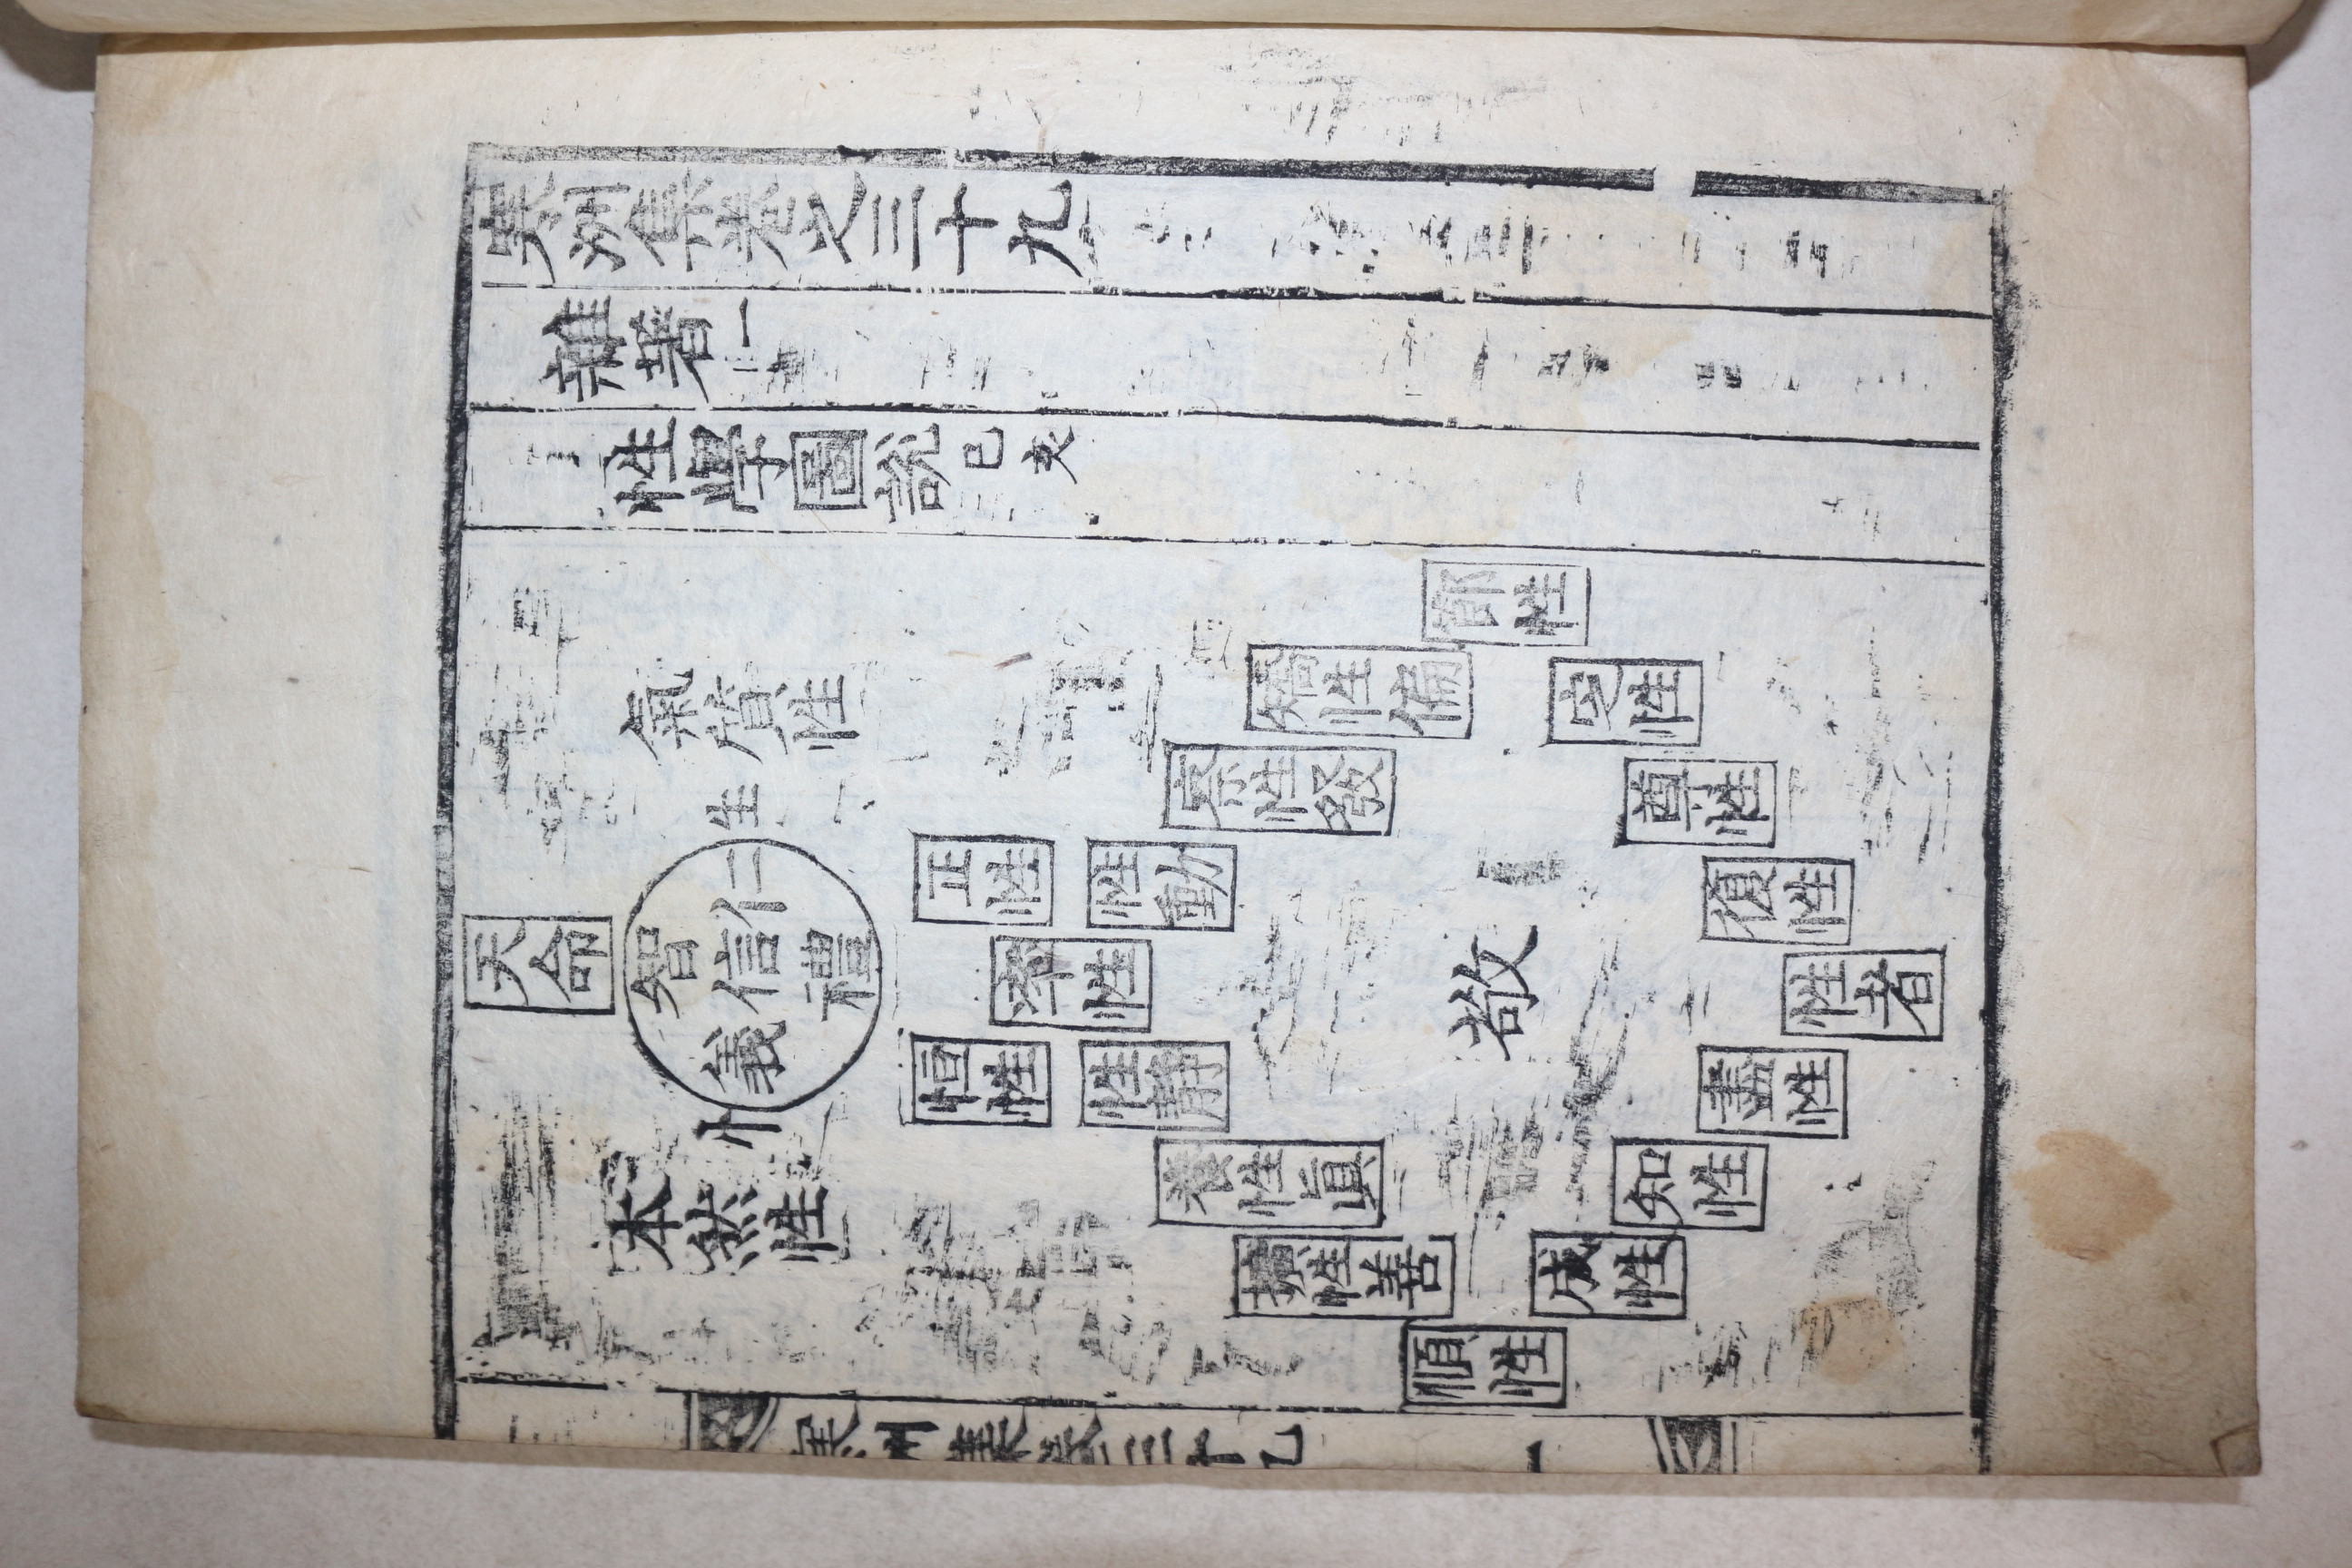 寒洲集卷之三十九
雜著
性學圖說 己亥
天命
氣質性
生
智
仁
信
義
禮
忄
本然性
正性
恒性
率性
性動
性靜
察性發
養性眞
矯性偏
擴性善
節性
順性
敬
定性
成性
尊性
知性
復性
盡性
性者
寒洲集卷三十九
一